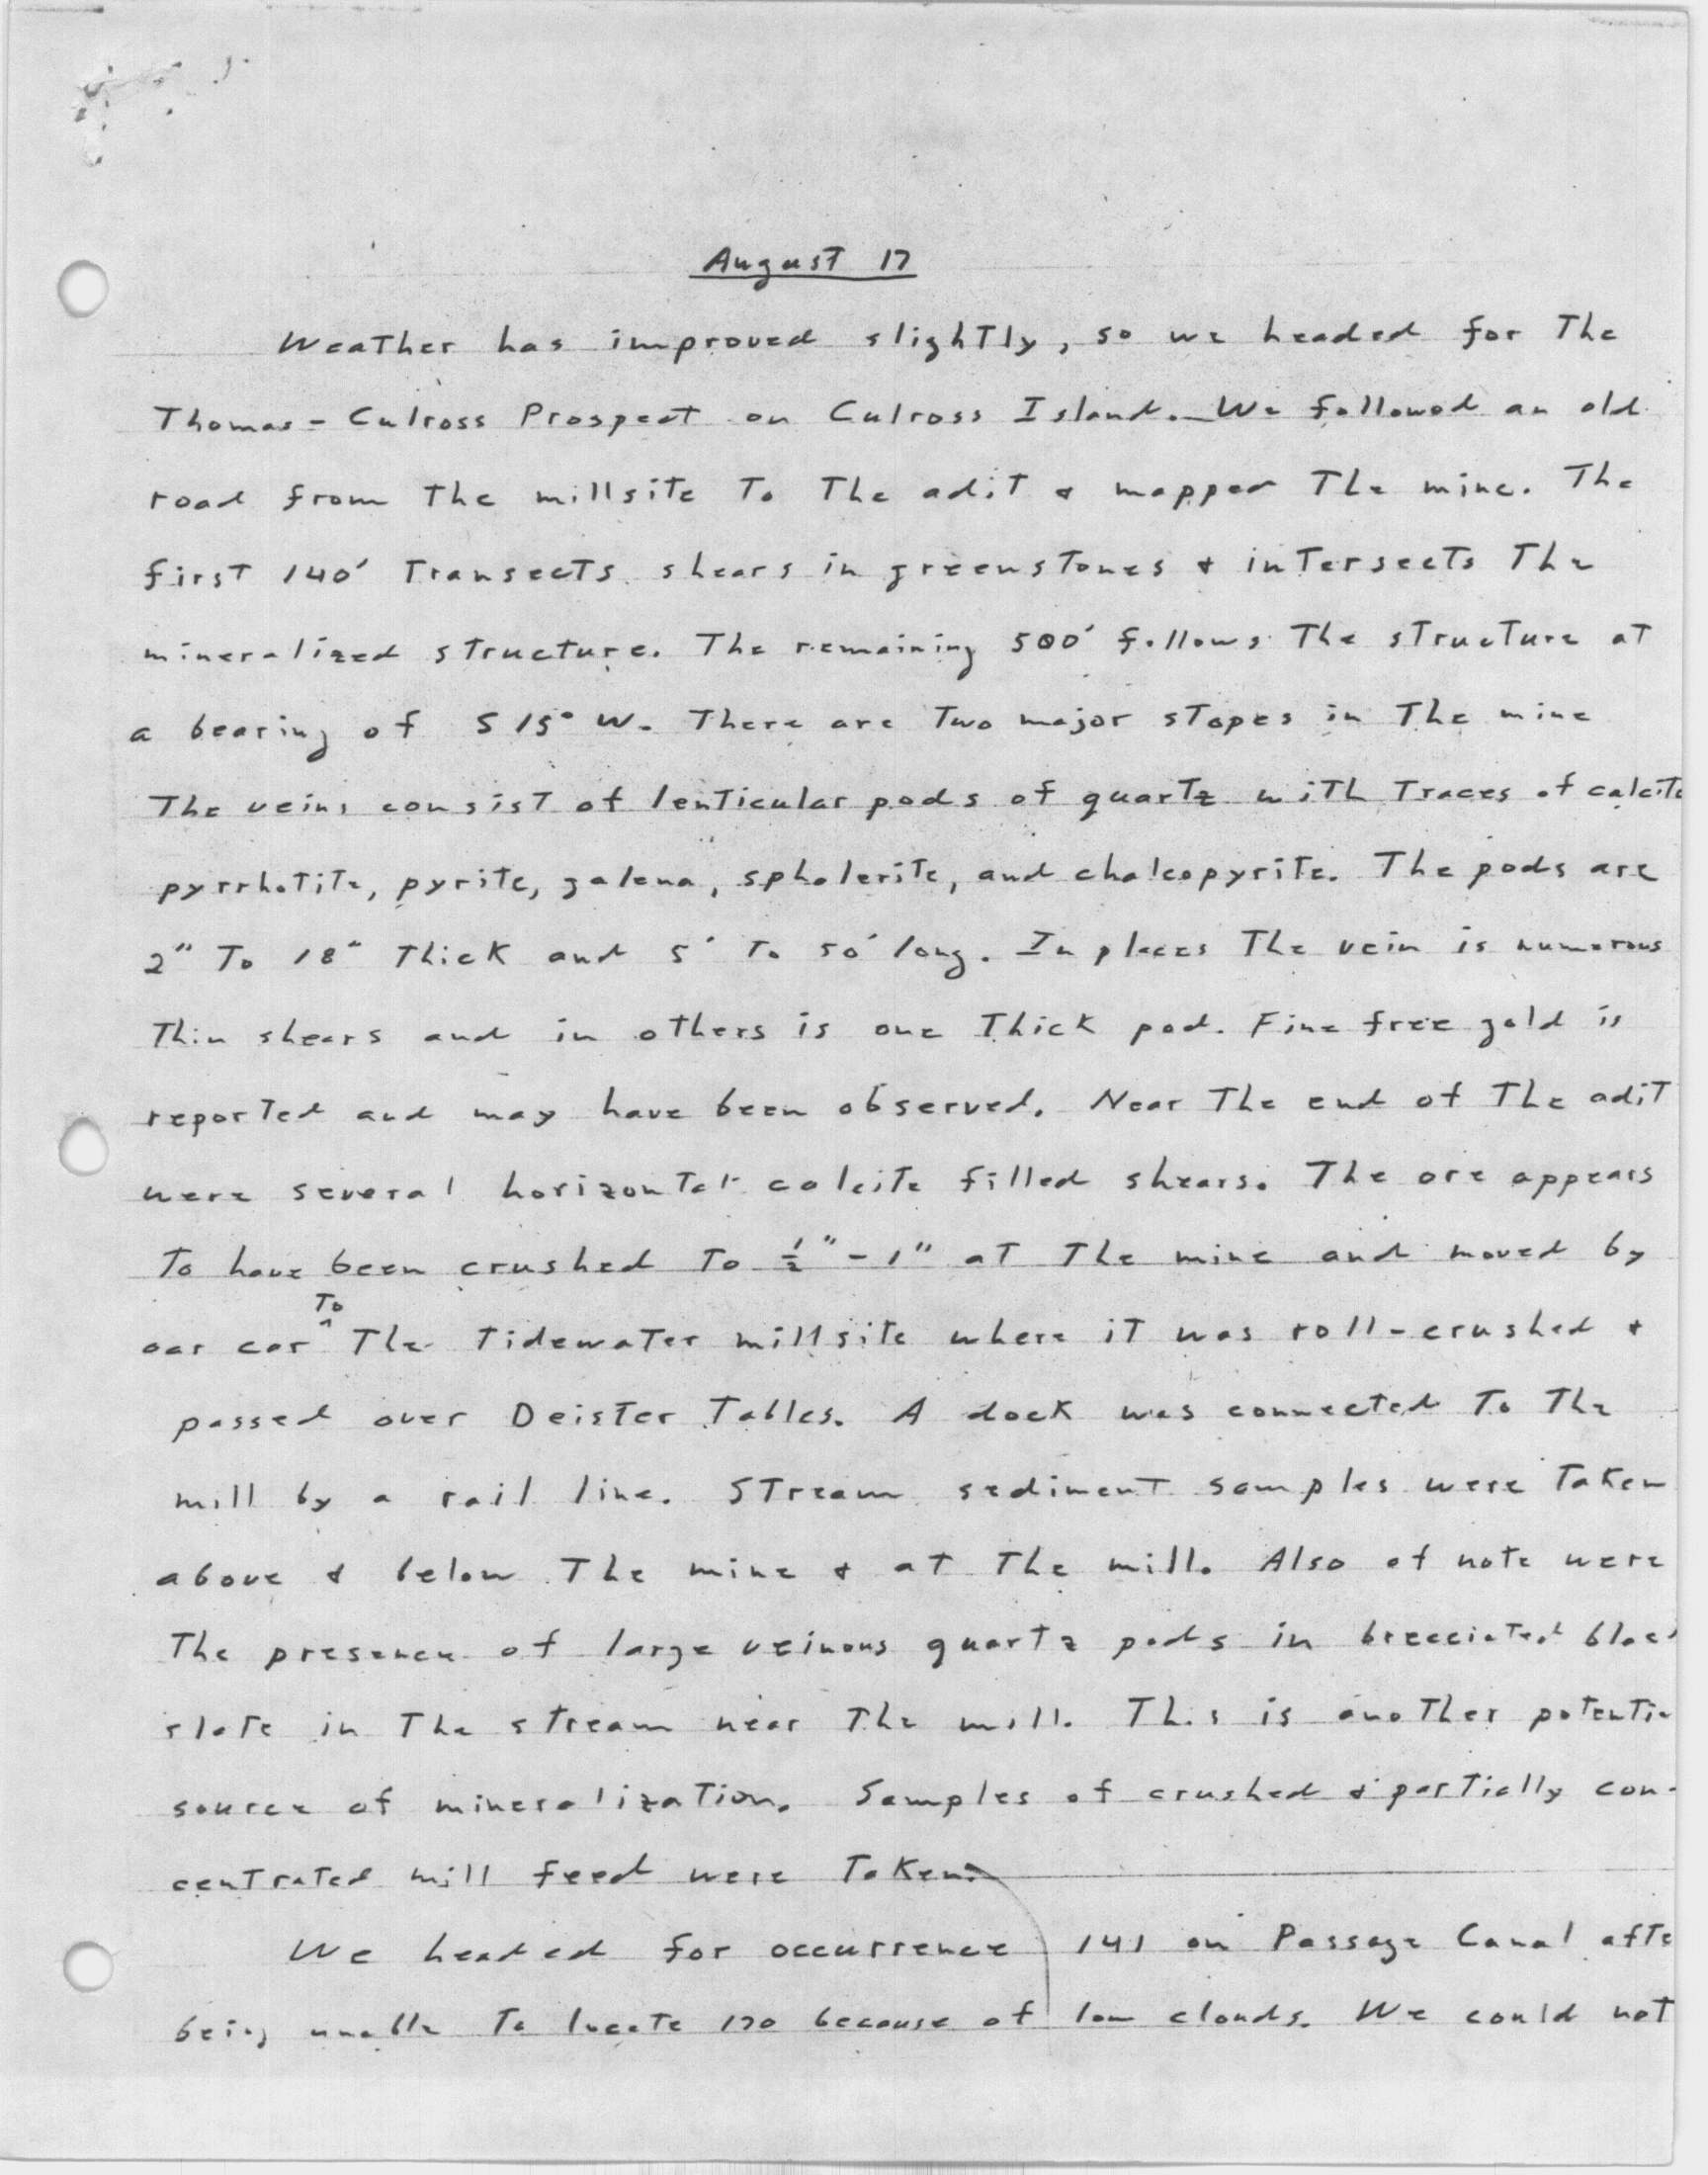 August 17
Weather has improved slightly, so we headed for The
Thomas - Culross Prospect on Culross Island. We followed an old
road from the millsite To The adit & mapped The mine. The
first 140' Transects shears in greenstones & intersects The
mineralized structure. The remaining 500' follows The structure at
a bearing of S 15° W. There are Two major stopes in The mine
The veins consist of lenticular pods of quartz with Traces of calcite
pyrrhotite, pyrite, galena, sphalerite, and chalcopyrite. The pods are
2" To 18" Thick and 5' To 50' long. In places The vein is numerous
Thin shears and in others is one Thick pod. Fine free gold is
reported and may have been observed. Near The end of The adit
were several horizontal calcite filled shears. The ore appears
To have been crushed To ½" - 1" at The mine and moved by
oar car To The Tidewater millsite where it was roll-crushed &
passed over Deister Tables. A dock was connected To The
mill by a rail line. Stream sediment samples were Taken
above & below The mine & at The mill. Also of note were
The presence of large veinous quartz pods in brecciated blac
slate in The stream near The mill. This is another potentia
source of mineralization. Samples of crushed & partially con-
centrated mill feed were Taken.
We headed for occurrence 141 on Passage Canal afte
being unable To locate 170 because of low clouds. We could not